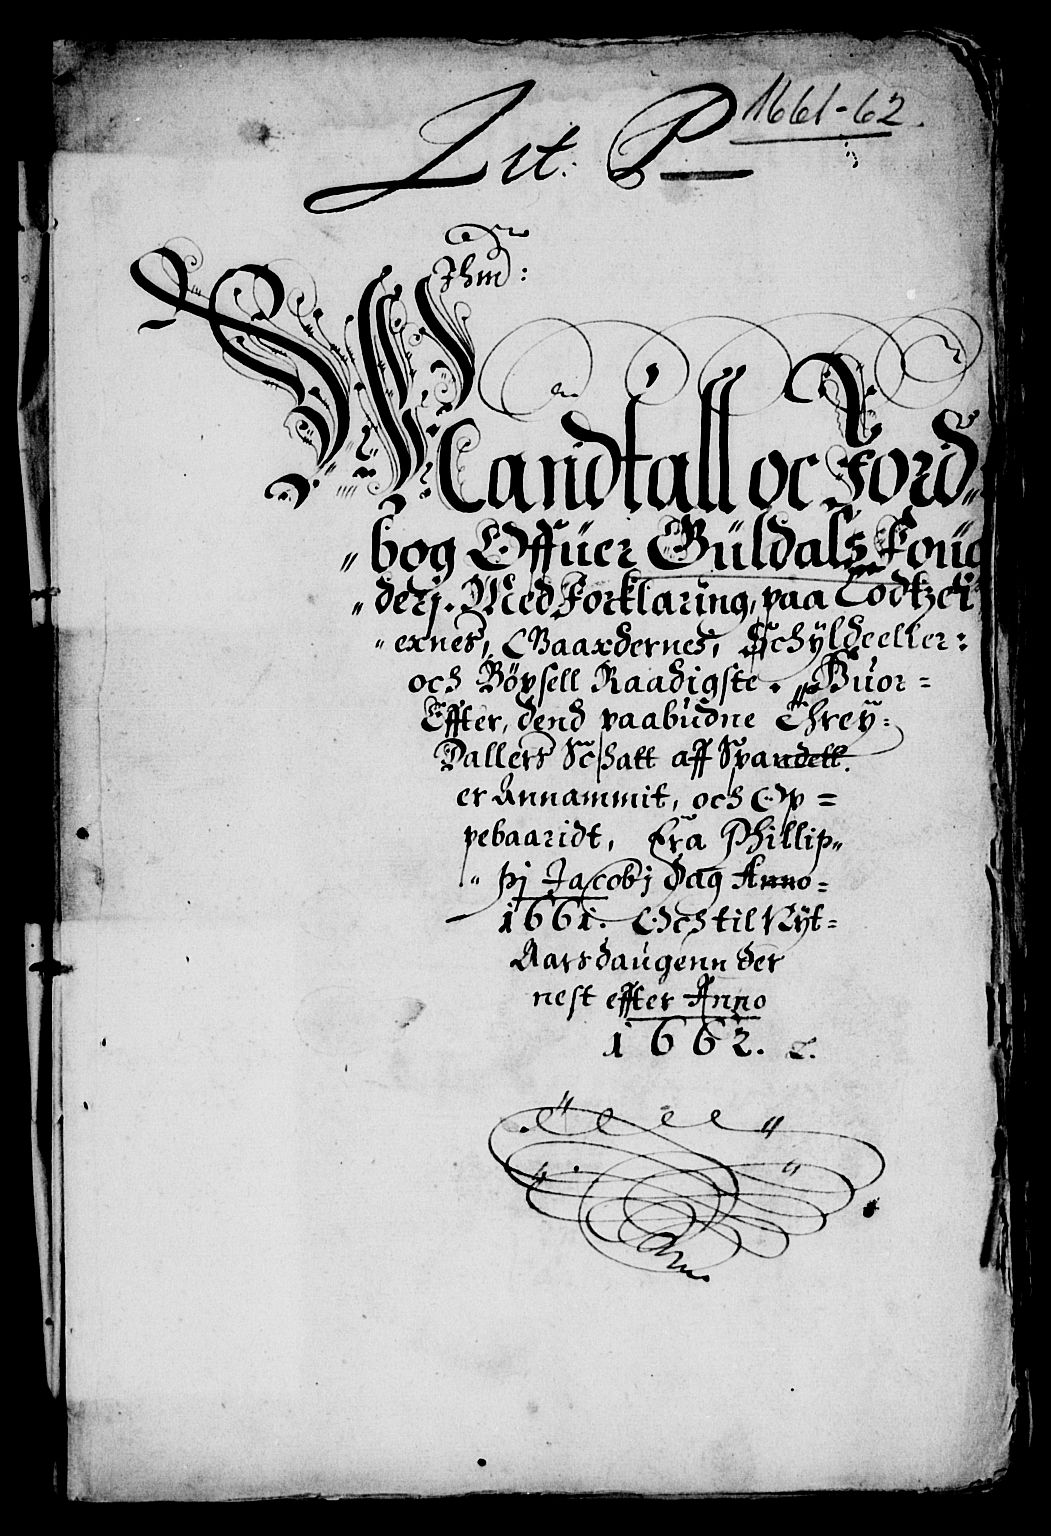 1661-62.
Lit: P
Jhm:
Mandtall oc Jord„
„bog Offuer Güldals Foug
„derj. Med Forklaring, paa Lodtzei
„ernes, Baaxdernes, Schÿldeeller:
och Böpsell Raadigste. Huor=
Effter, dend paabudne Threÿ:
Dallers Schatt aff Spandett.
er Annammit, och Op=
pebaaridt, Fra Phillip„
„pj Jacobj Dag Anno=
1661. Och til Nÿt=
Aarsdaugenn der
nest effter Anno
1662.